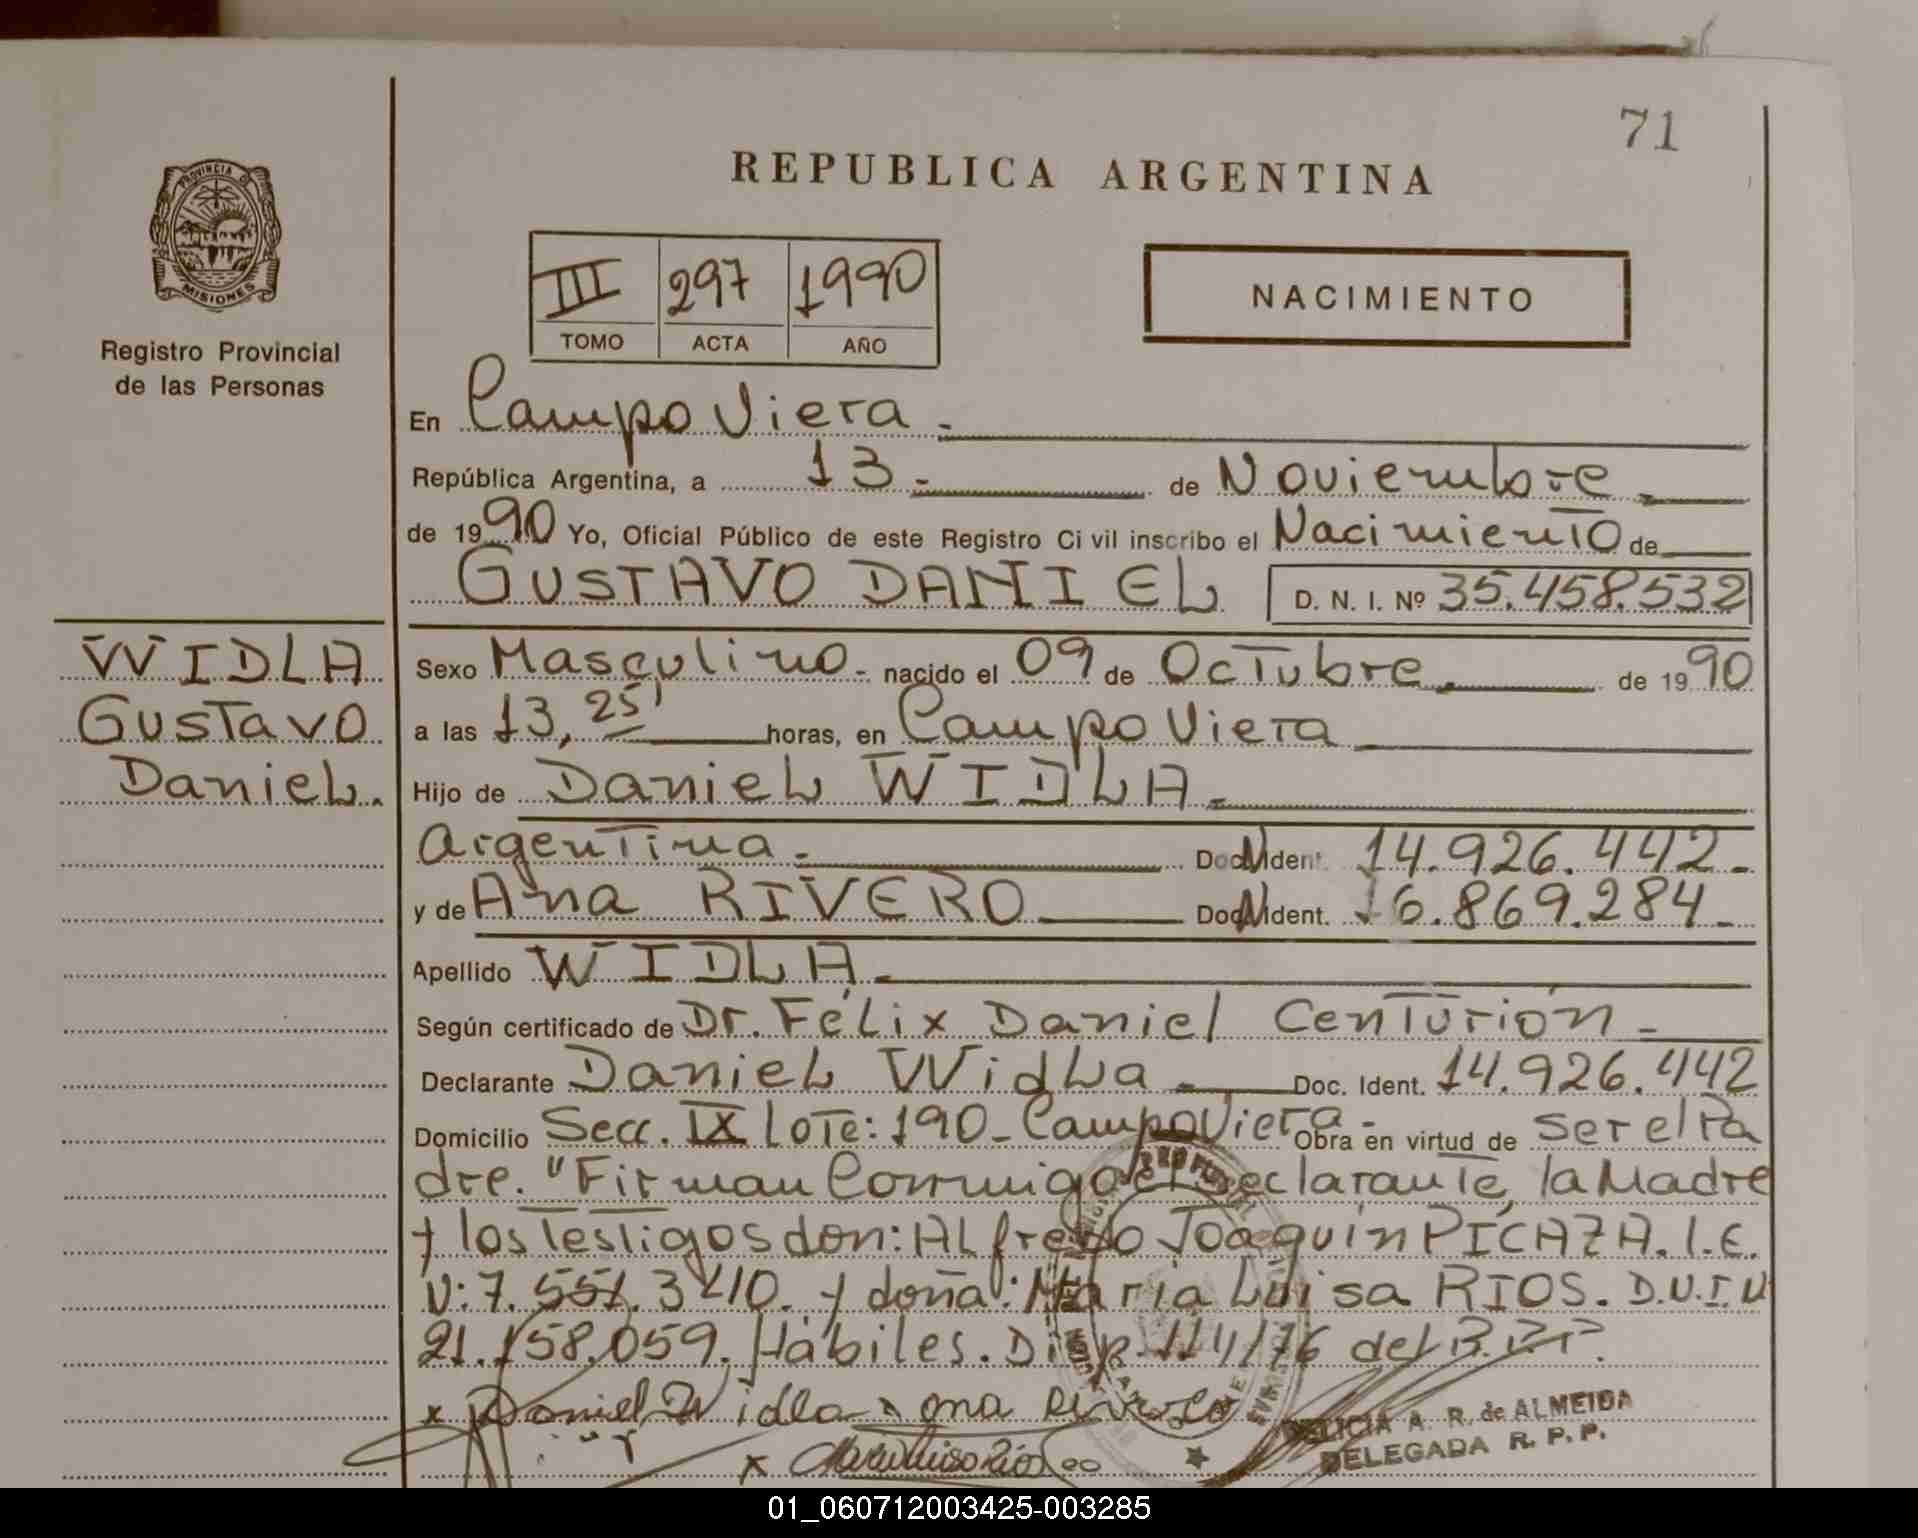 71
REPUBLICA ARGENTINA
PROVINCIA DE
MISIONES
Registro Provincial
de las Personas
III 297 1990
TOMO ACTA AÑO
NACIMIENTO
En Campo Viera.
República Argentina, a 13. de Noviembre
de 1990 Yo, Oficial Público de este Registro Civil inscribo el Nacimiento de
GUSTAVO DANIEL D. N. I. Nº 35.458.532
WIDLA
Gustavo
Daniel.
Sexo Masculino. nacido el 09 de Octubre. de 1990
a las 13,25' horas, en Campo Viera
Hijo de Daniel WIDLA.
Argentina. Doc. Ident. 14.926.442.
y de Ana RIVERO Doc. Ident. 16.869.284.
Apellido WIDLA.
Según certificado de Dr. Félix Daniel Centurión.
Declarante Daniel Widla. Doc. Ident. 14.926.442
Domicilio Secc. IX Lote: 190. Campo Viera. Obra en virtud de ser el Pa
dre. "Firman Conmigo el Declarante, la Madre
y los Testigos don: Alfredo Joaquín PICAZA. I.E.
N: 7.551.340. y doña: María Luisa RIOS. D.N.I. N
21.158.059. Hábiles. Disp. 114/76 del R.P.P.
x Daniel Widla x ana Rivero
x Maria Luisa Rios
DELICIA A. R. de ALMEIDA
DELEGADA R. P. P.
01_060712003425-003285